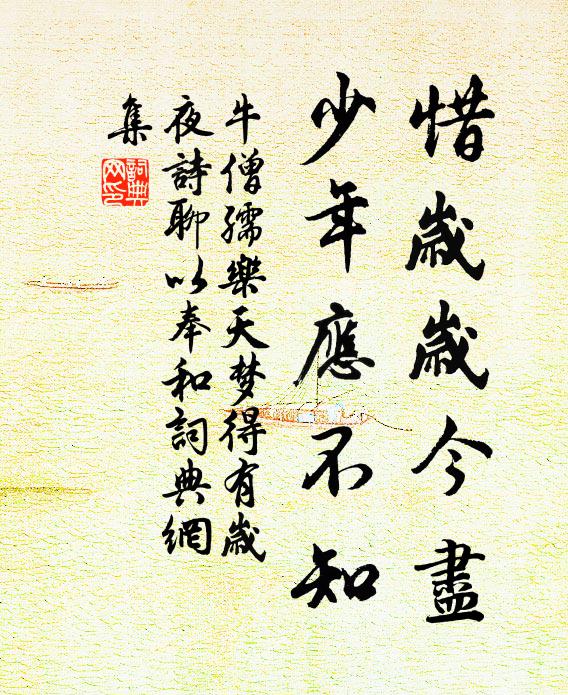 惜歲歲今盡
少年應不知
牛僧孺樂天梦得有歲
夜詩聊以奉和詞典網
集
詞典
网印